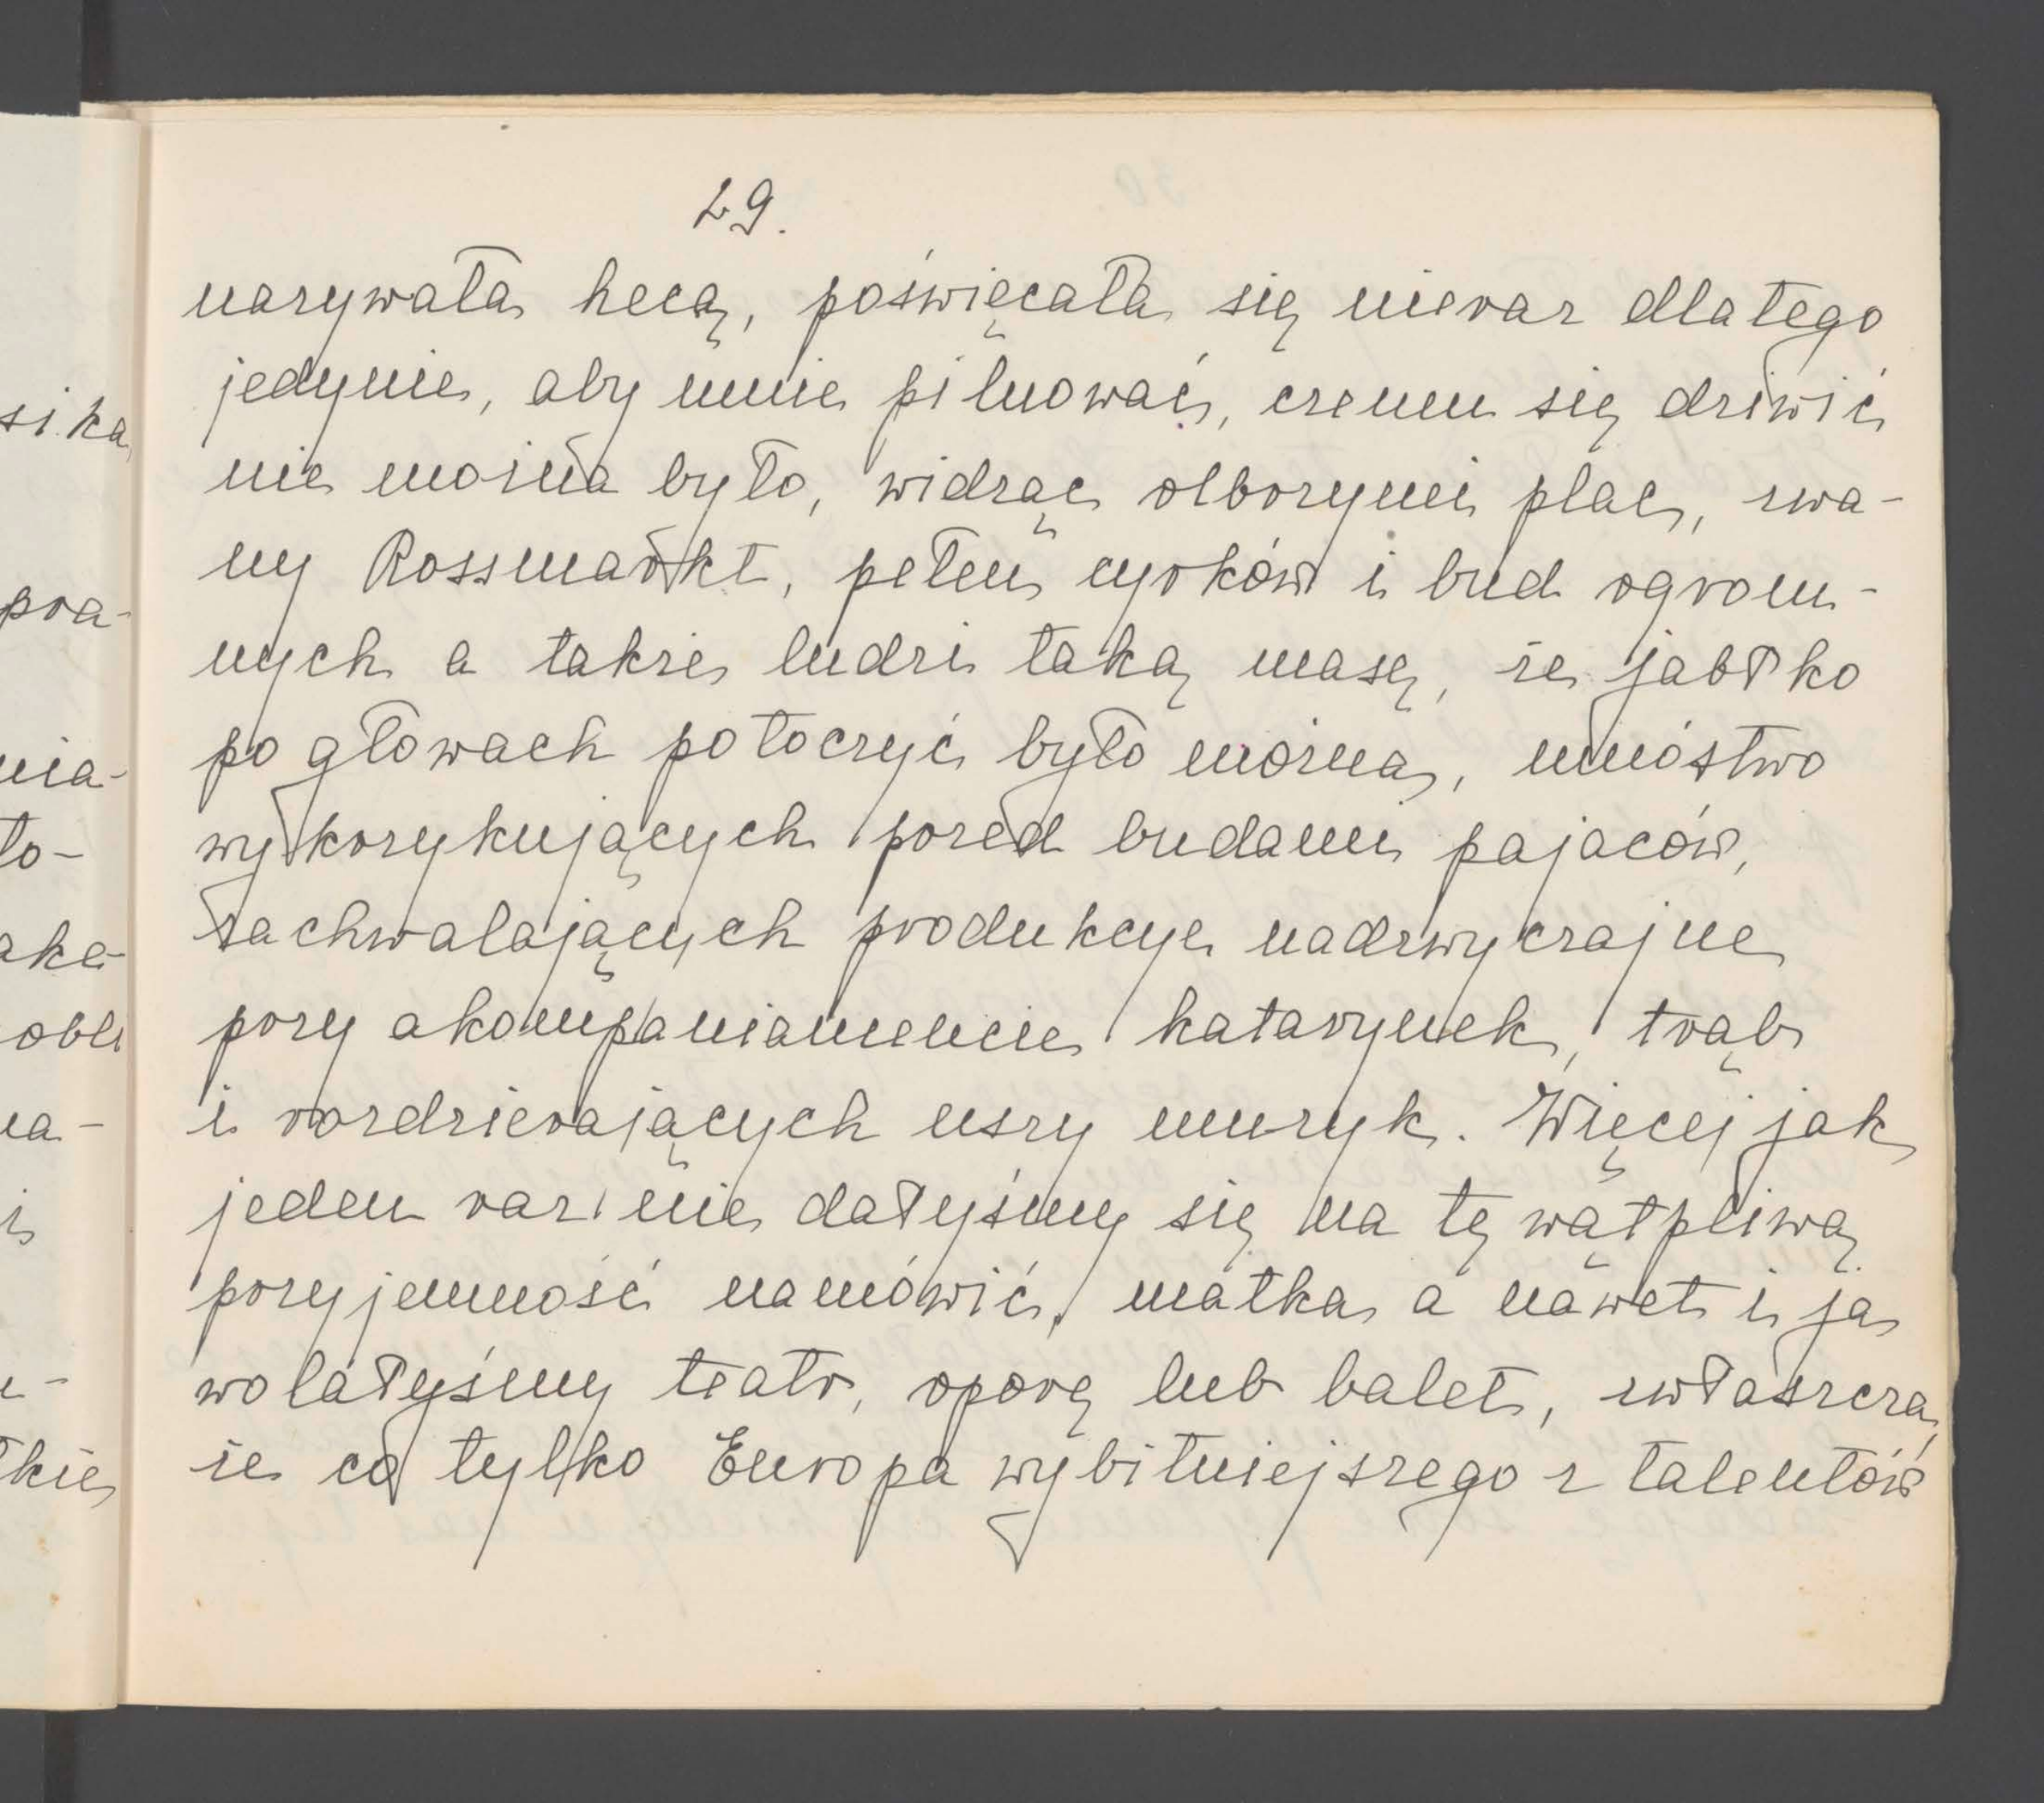 29.
nazywała hecą, poświęcała się nieraz dlatego
jedynie, aby mnie pilnować, czemu się dziwić
nie można było, widząc olbrzymi plac, zwa-
ny Rossmarkt, pełen cyrków i bud ogrom-
nych a także ludzi taką masę, że jabłko
po głowach potoczyć było można, mnóstwo
wykrzykujących przed budami pajaców,
zachwalających produkcye nadzwyczajne
przy akompaniamencie katarynek, trąb
i rozdzierających uszy muzyk. Więcej jak
jeden raz nie dałyśmy się na tę wątpliwą
przyjemność namówić, matka a nawet i ja
wolałyśmy teatr, operę lub balet, zwłaszcza,
że co tylko Europa wybitniejszego z talentów
si ka
pra-
nia-
to-
ake-
obli
na-
i
tkie